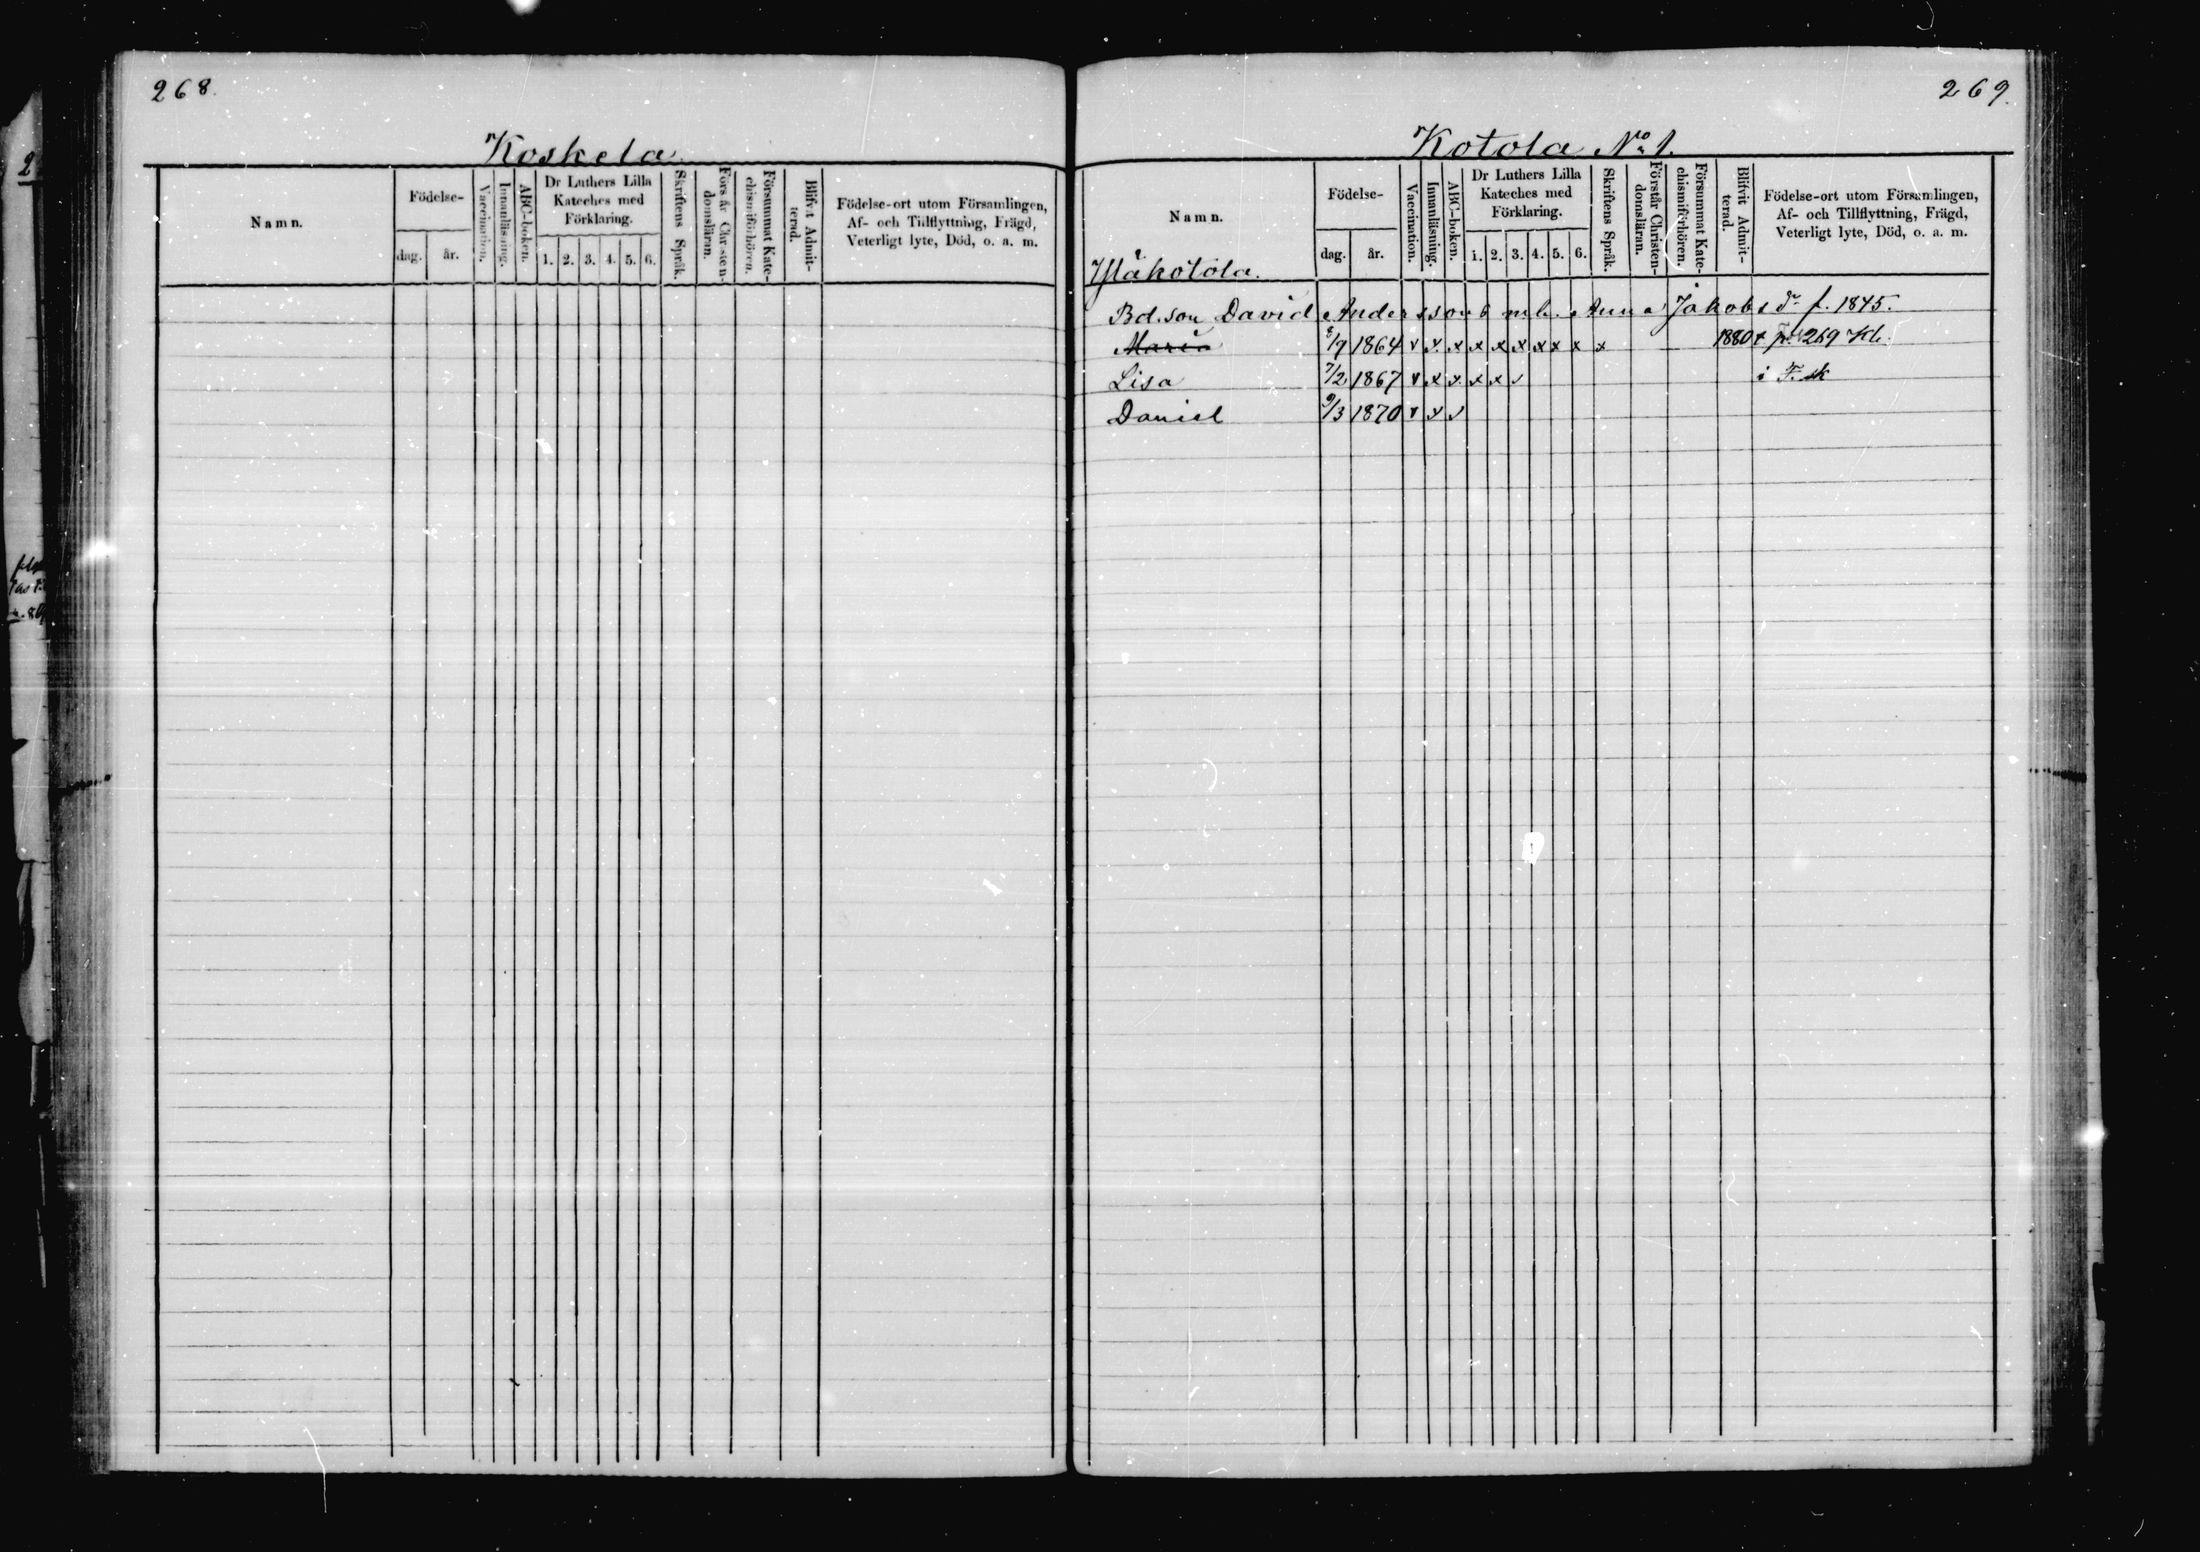 268.
Koskela
Namn.
Födelse-
dag.
år.
Vaccination.
Innanläsning.
ABC-boken.
Dr Luthers Lilla
Kateches med
Förklaring.
1. 2. 3. 4. 5. 6.
Skriftens Språk.
Förstår Christen-
domsläran.
Försummat Kate-
chismiförhören.
Blifvit Admit-
terad.
Födelse-ort utom Församlingen,
Af- och Tillflyttning, Frägd,
Veterligt lyte, Död, o. a. m.
269.
Kotola No 1.
Namn.
Födelse-
dag.
år.
Vaccination.
Innanläsning.
ABC-boken.
Dr Luthers Lilla
Kateches med
Förklaring.
1. 2. 3. 4. 5. 6.
Skriftens Språk.
Förstår Christen-
domsläran.
Försummat Kate-
chismiförhören.
Blifvit Admit-
terad.
Födelse-ort utom Församlingen,
Af- och Tillflyttning, Frägd,
Veterligt lyte, Död, o. a. m.
Ylikotola.
Bd.son David Andersson o mh. Anna Jakobsdr f. 1845.
Maria 8/9 1864 v x x x x x x x x x 1880 p. 269 Kb.
Lisa 7/2 1867 v x x x x v i F. sk
Daniel 9/3 1870 v v v